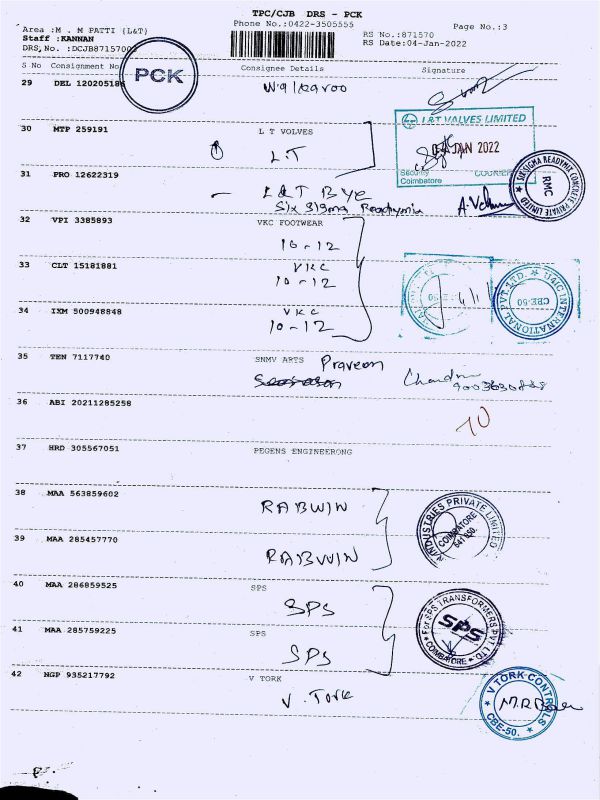 TPC/CJB DRS - PCK
Phone No.:0422-3505555
Page No.:3
Area :M . M PATTI (L&T)
Staff :KANNAN
DRS, No. :DCJB8715700
RS No.:871570
RS Date:04-Jan-2022
PCK
S No Consignment No Consignee Details Signature
29 DEL 120205186 Walkaroo
30 MTP 259191 L T VOLVES
L.T
L&T VALVES LIMITED
JAN 2022
Security COURIER
Coimbatore
31 PRO 12622319
L&T Bye
Six sigma Readymix
SIX SIGMA READYMIX CONCRETE PRIVATE LIMITED
RMC
32 VPI 3385893 VKC FOOTWEAR
10-12
33 CLT 15181881 VKC
10-12
34 IXM 500948848 VKC
10-12
INTERNATIONAL PVT. LTD.
CBE-50
35 TEN 7117740 SNMV ARTS Praveen
36 ABI 20211285258
10
37 HRD 305567051 PEGENS ENGINEERONG
38 MAA 563859602 RABWIN
INDUSTRIES PRIVATE LIMITED
COIMBATORE
39 MAA 285457770 RABWIN
40 MAA 286859525 SPS
SPS
For SPS TRANSFORMERS PVT LTD.
SPS
COIMBATORE
41 MAA 285759225 SPS
SPS
42 NGP 935217792 V TORK
V. Tork
V TORK CONTROLS
CBE-50.